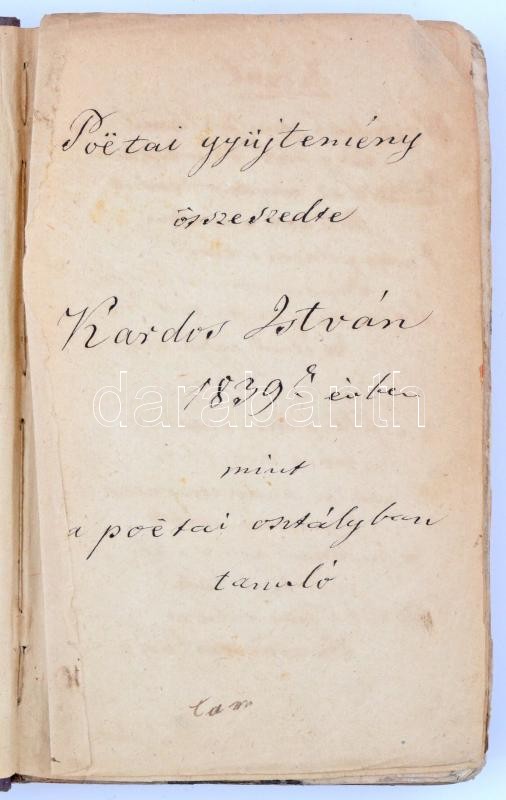 Poëtai gyüjtemény
összeszedte
Kardos István
1839k évben
mint
a poëtai osztályban
tanuló
darabanth